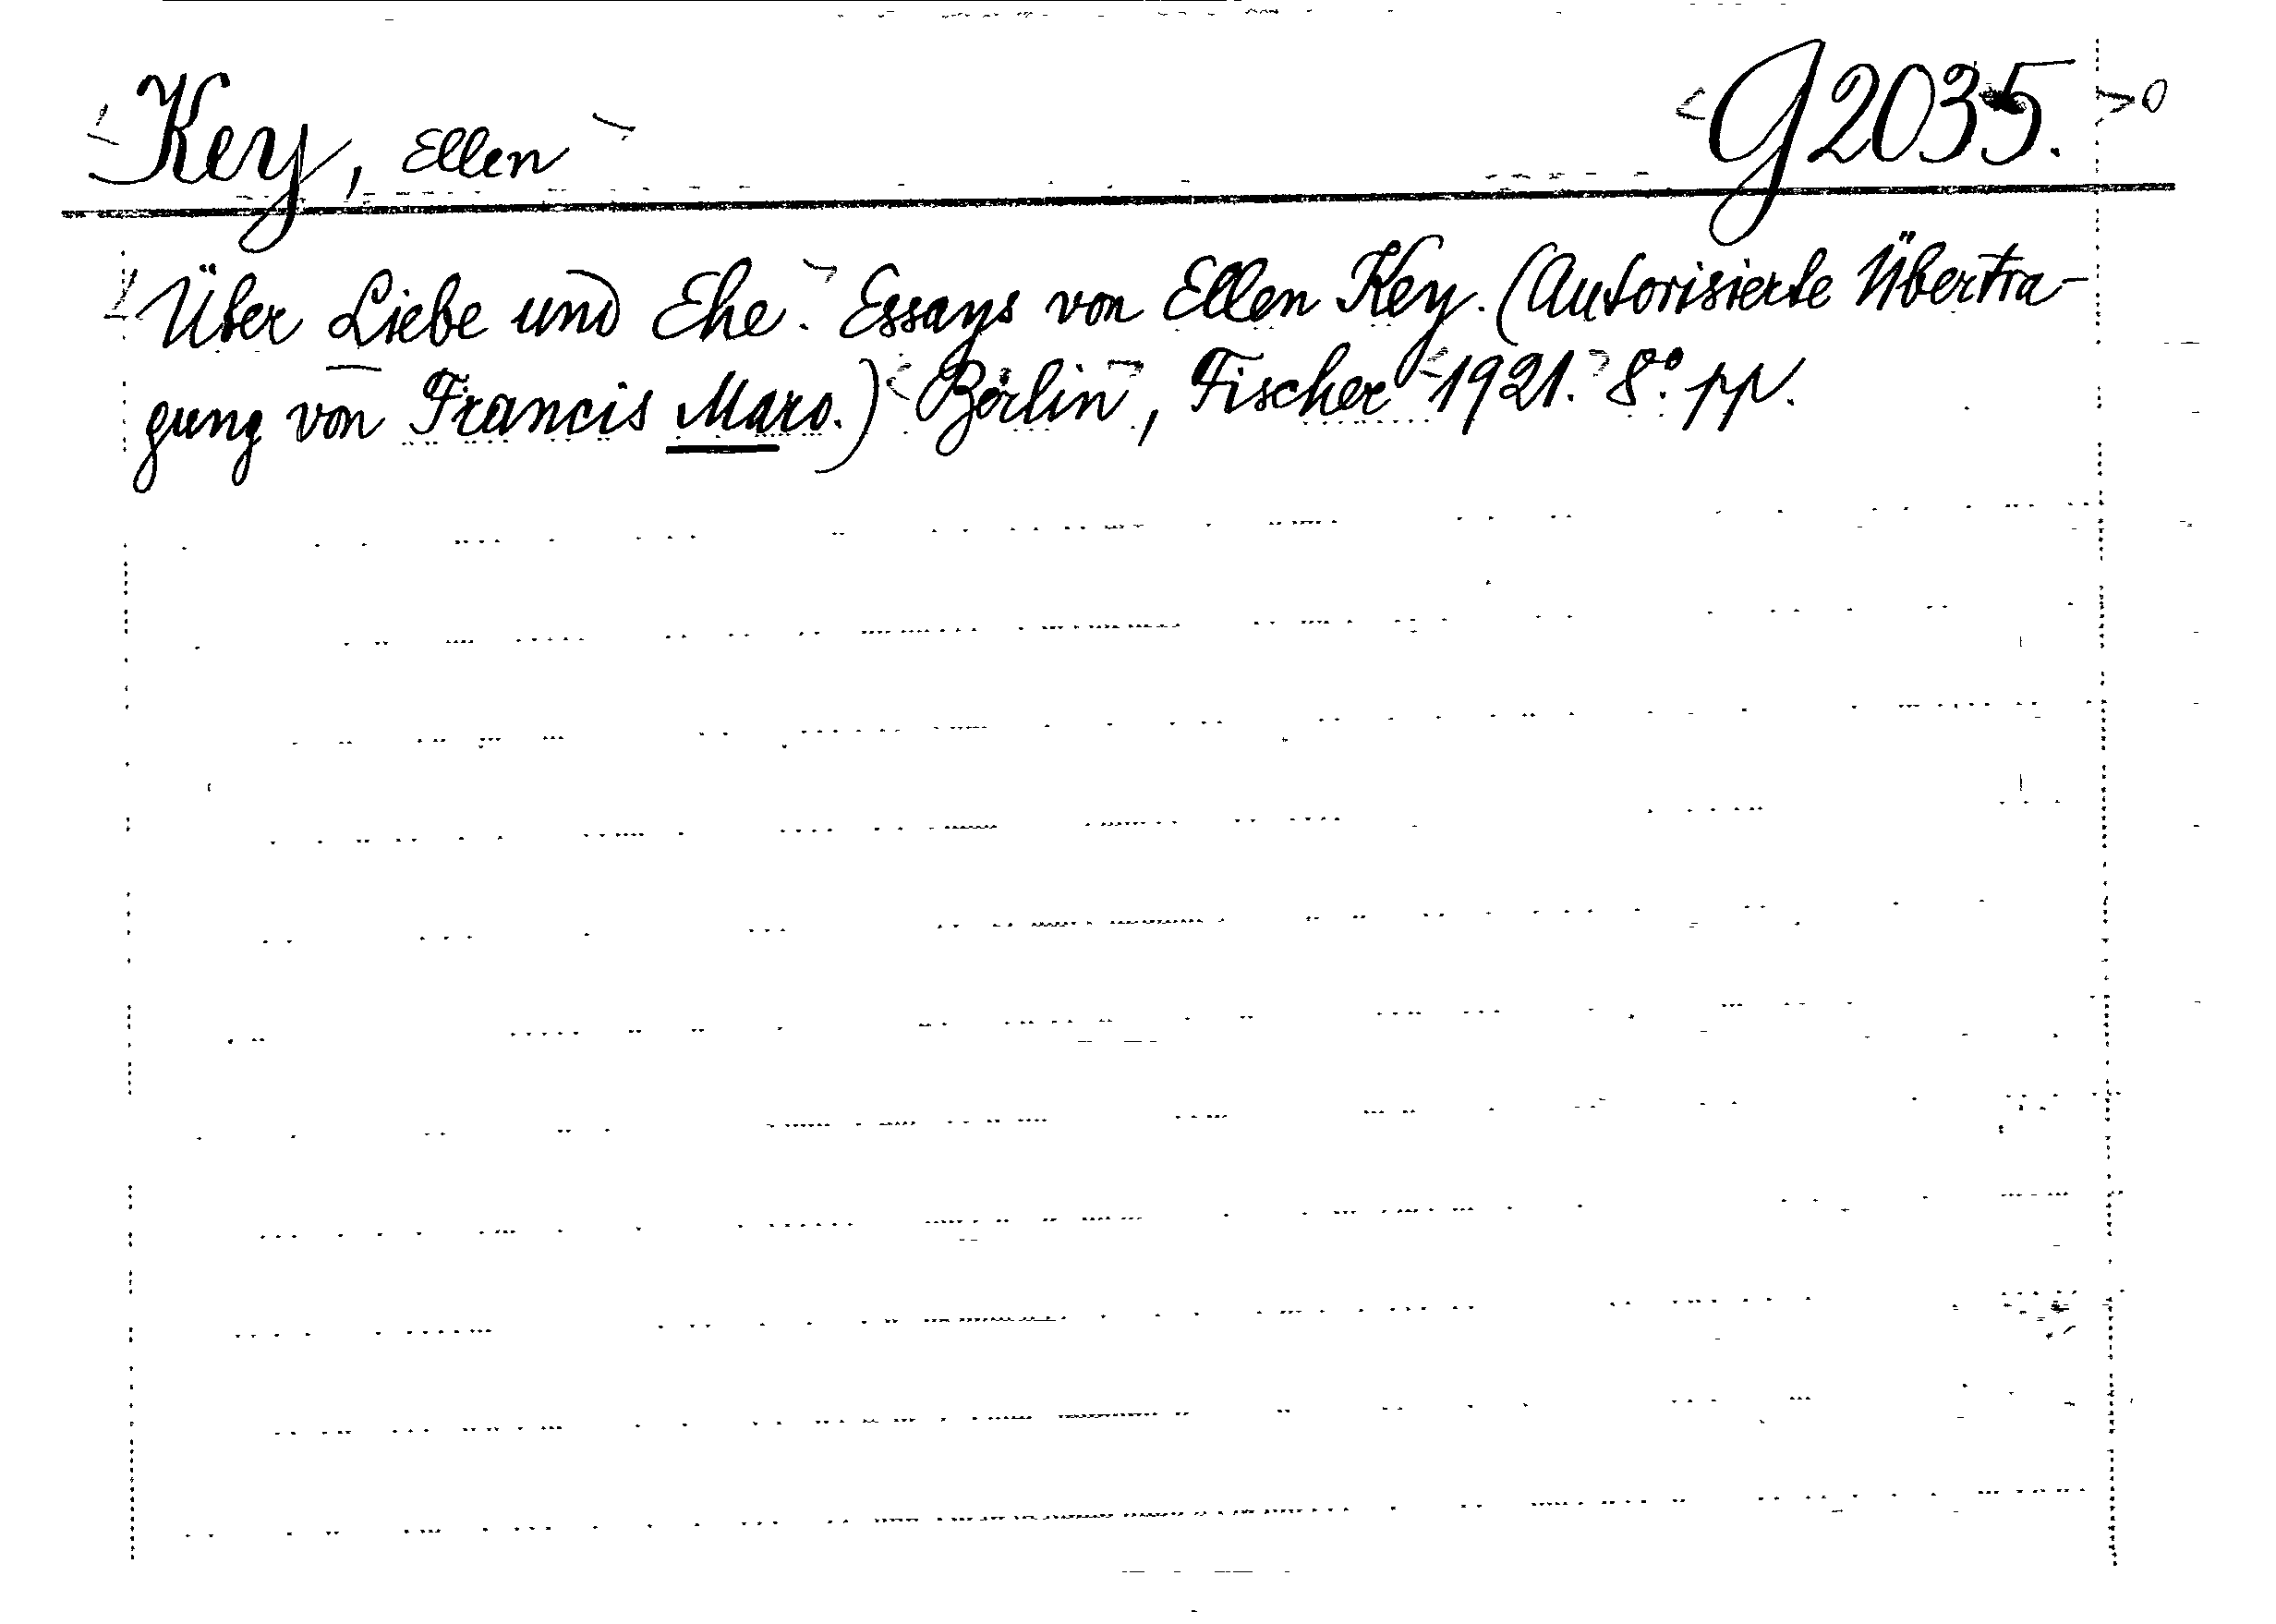 Key, Ellen G2035.
Über Liebe und Ehe. Essays von Ellen Key. (Autorisierte Übertra-
gung von Francis Maro.) Berlin, Fischer 1921. 8° pp.